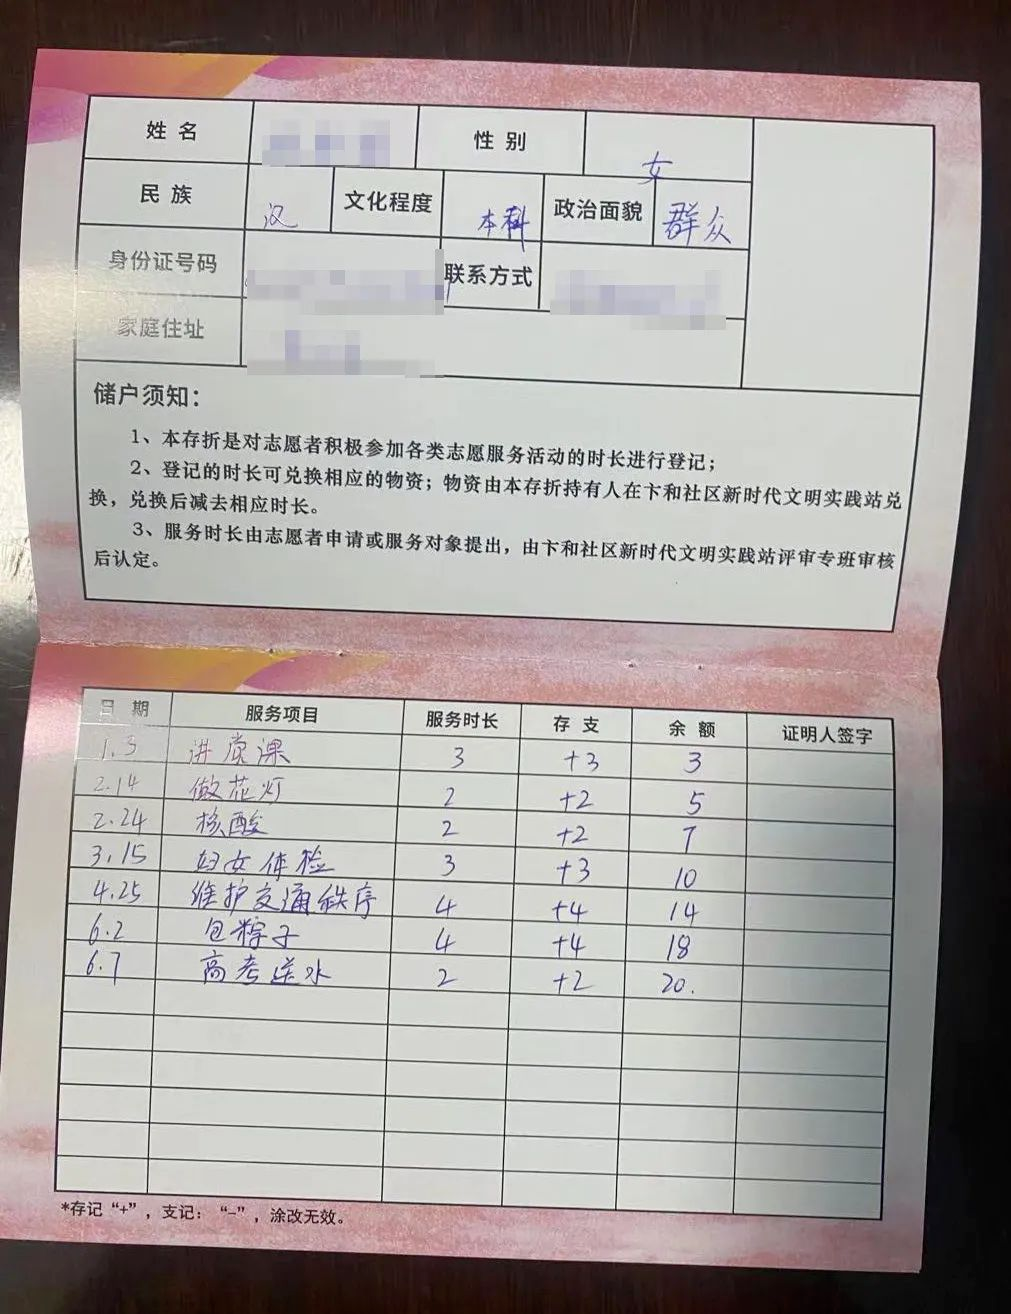 姓 名 性 别 女
民 族 汉 文化程度 本科 政治面貌 群众
身份证号码 联系方式
家庭住址
储户须知：
1、本存折是对志愿者积极参加各类志愿服务活动的时长进行登记；
2、登记的时长可兑换相应的物资；物资由本存折持有人在卞和社区新时代文明实践站兑
换，兑换后减去相应时长。
3、服务时长由志愿者申请或服务对象提出，由卞和社区新时代文明实践站评审专班审核
后认定。
日 期 服务项目 服务时长 存 支 余 额 证明人签字
1.3 讲党课 3 +3 3
2.14 做花灯 2 +2 5
2.24 核酸 2 +2 7
3.15 妇女体检 3 +3 10
4.25 维护交通秩序 4 +4 14
6.2 包粽子 4 +4 18
6.7 高考送水 2 +2 20.
*存记“+”，支记：“-”，涂改无效。